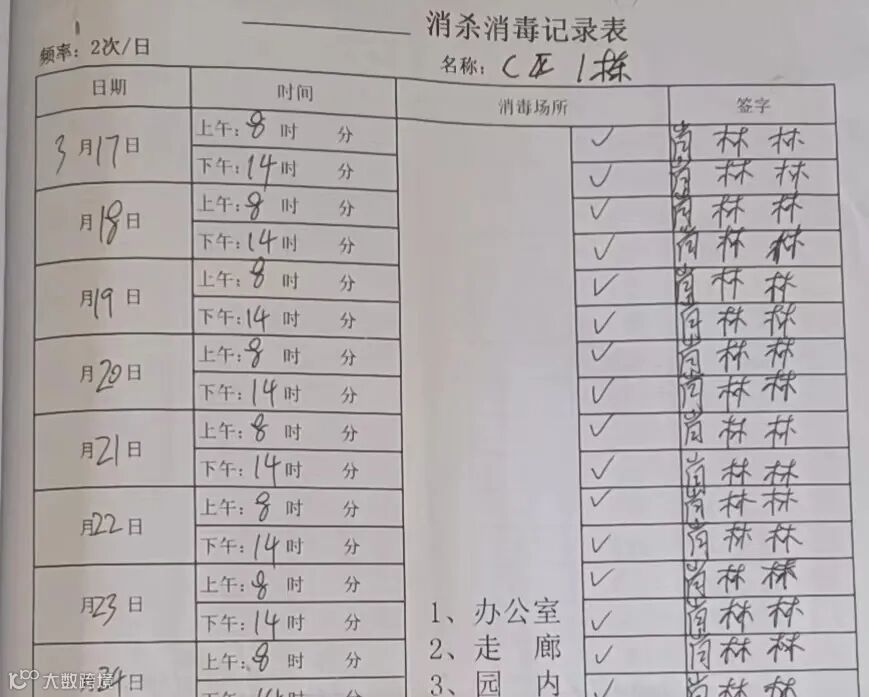 消杀消毒记录表
频率：2次/日
名称：C区 1栋
日期 时间 消毒场所 签字
3月17日 上午：8时 分 ✓ 肖林林
下午：14时 分 ✓ 肖林林
月18日 上午：8时 分 ✓ 肖林林
下午：14时 分 ✓ 肖林林
月19日 上午：8时 分 ✓ 肖林林
下午：14时 分 ✓ 肖林林
月20日 上午：8时 分 ✓ 肖林林
下午：14时 分 ✓ 肖林林
月21日 上午：8时 分 ✓ 肖林林
下午：14时 分 ✓ 肖林林
月22日 上午：8时 分 ✓ 肖林林
下午：14时 分 ✓ 肖林林
月23日 上午：8时 分 ✓ 肖林林
下午：14时 分 1、办公室 ✓ 肖林林
月24日 上午：8时 分 2、走 廊 ✓ 肖林林
下午：14时 分 3、园 内 ✓ 肖林林
大数跨境